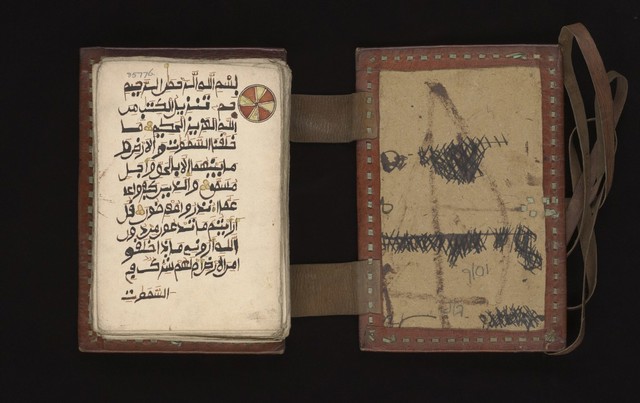 بسم الله الرحمن الرحيم
حم تنزيل الكتب من
الله العزيز الحكيم ما
خلقنا السموت والارض و
ما بينهما الا بالحق واجل
مسمى والذين كفروا
عما انذروا معرضون قل
ارايتم ما تدعون من دون
الله اروني ماذا خلقوا
من الارض ام لهم شرك في
السموت